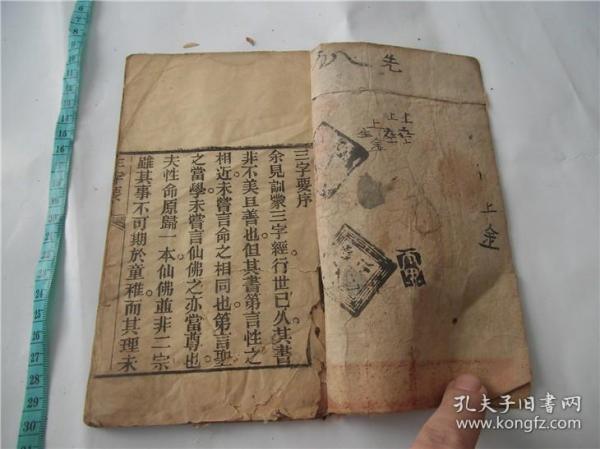 三字要序
余見訓蒙三字經行世已久其書
非不美且善也但其書第言性之
相近未嘗言命之相同也第言聖
之當學未嘗言仙佛之亦當尊也
夫性命原歸一本仙佛並非二宗
雖其事不可期於童稚而其理未
三字要
先
上
上
上
上
孔夫子旧书网
www.kongfz.com